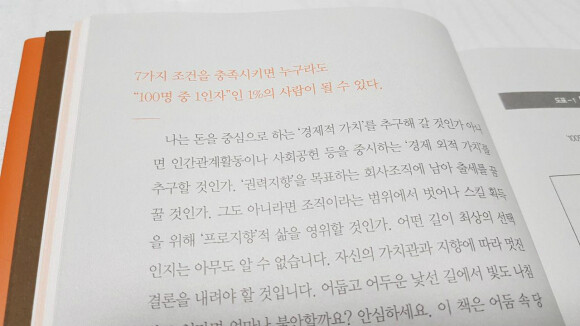 7가지 조건을 충족시키면 누구라도
“100명 중 1인자”인 1%의 사람이 될 수 있다.
나는 돈을 중심으로 하는 ‘경제적 가치’를 추구해 갈 것인가 아니
면 인간관계활동이나 사회공헌 등을 중시하는 ‘경제 외적 가치’를
추구할 것인가. ‘권력지향’을 목표하는 회사조직에 남아 출세를 꿈
꿀 것인가. 그도 아니라면 조직이라는 범위에서 벗어나 스킬 획득
을 위해 ‘프로지향’적 삶을 영위할 것인가. 어떤 길이 최상의 선택
인지는 아무도 알 수 없습니다. 자신의 가치관과 지향에 따라 멋진
결론을 내려야 할 것입니다. 어둡고 어두운 낯선 길에서 빛도 나침
얼마나 불안할까요? 안심하세요. 이 책은 어둠 속 당